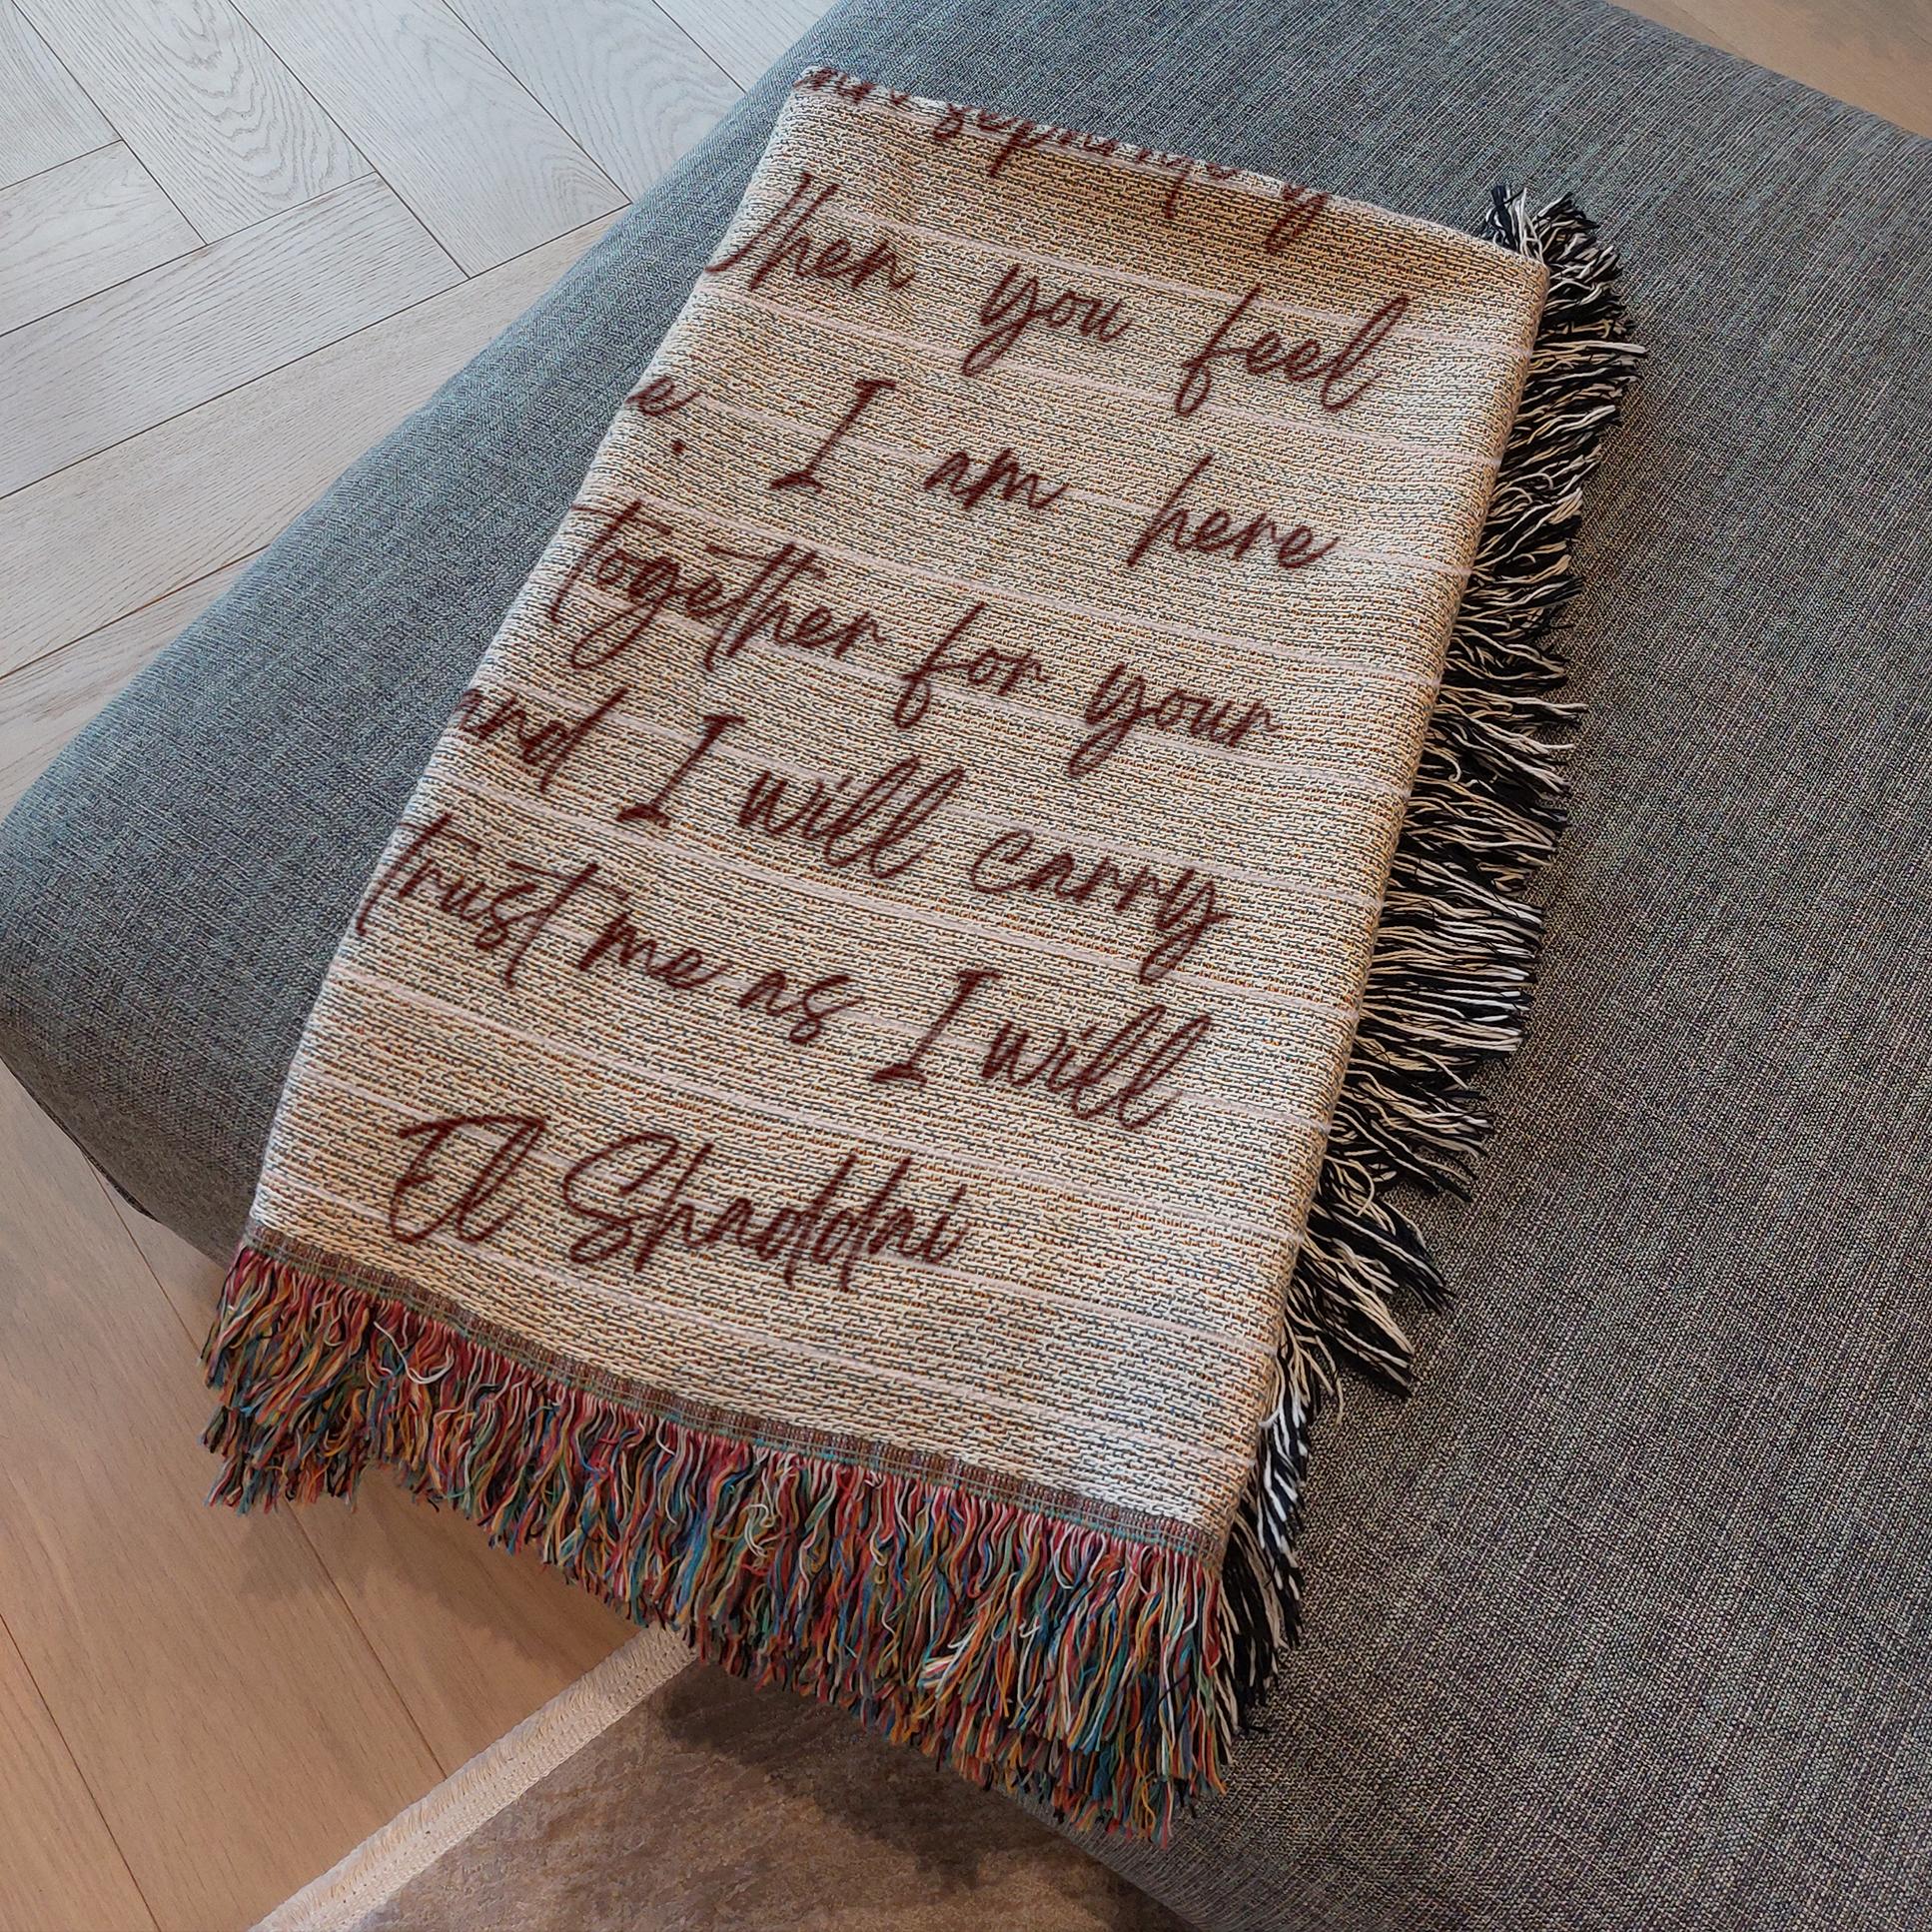 you feel
I am here
together for your
and I will carry
trust me as I will
El Shaddai